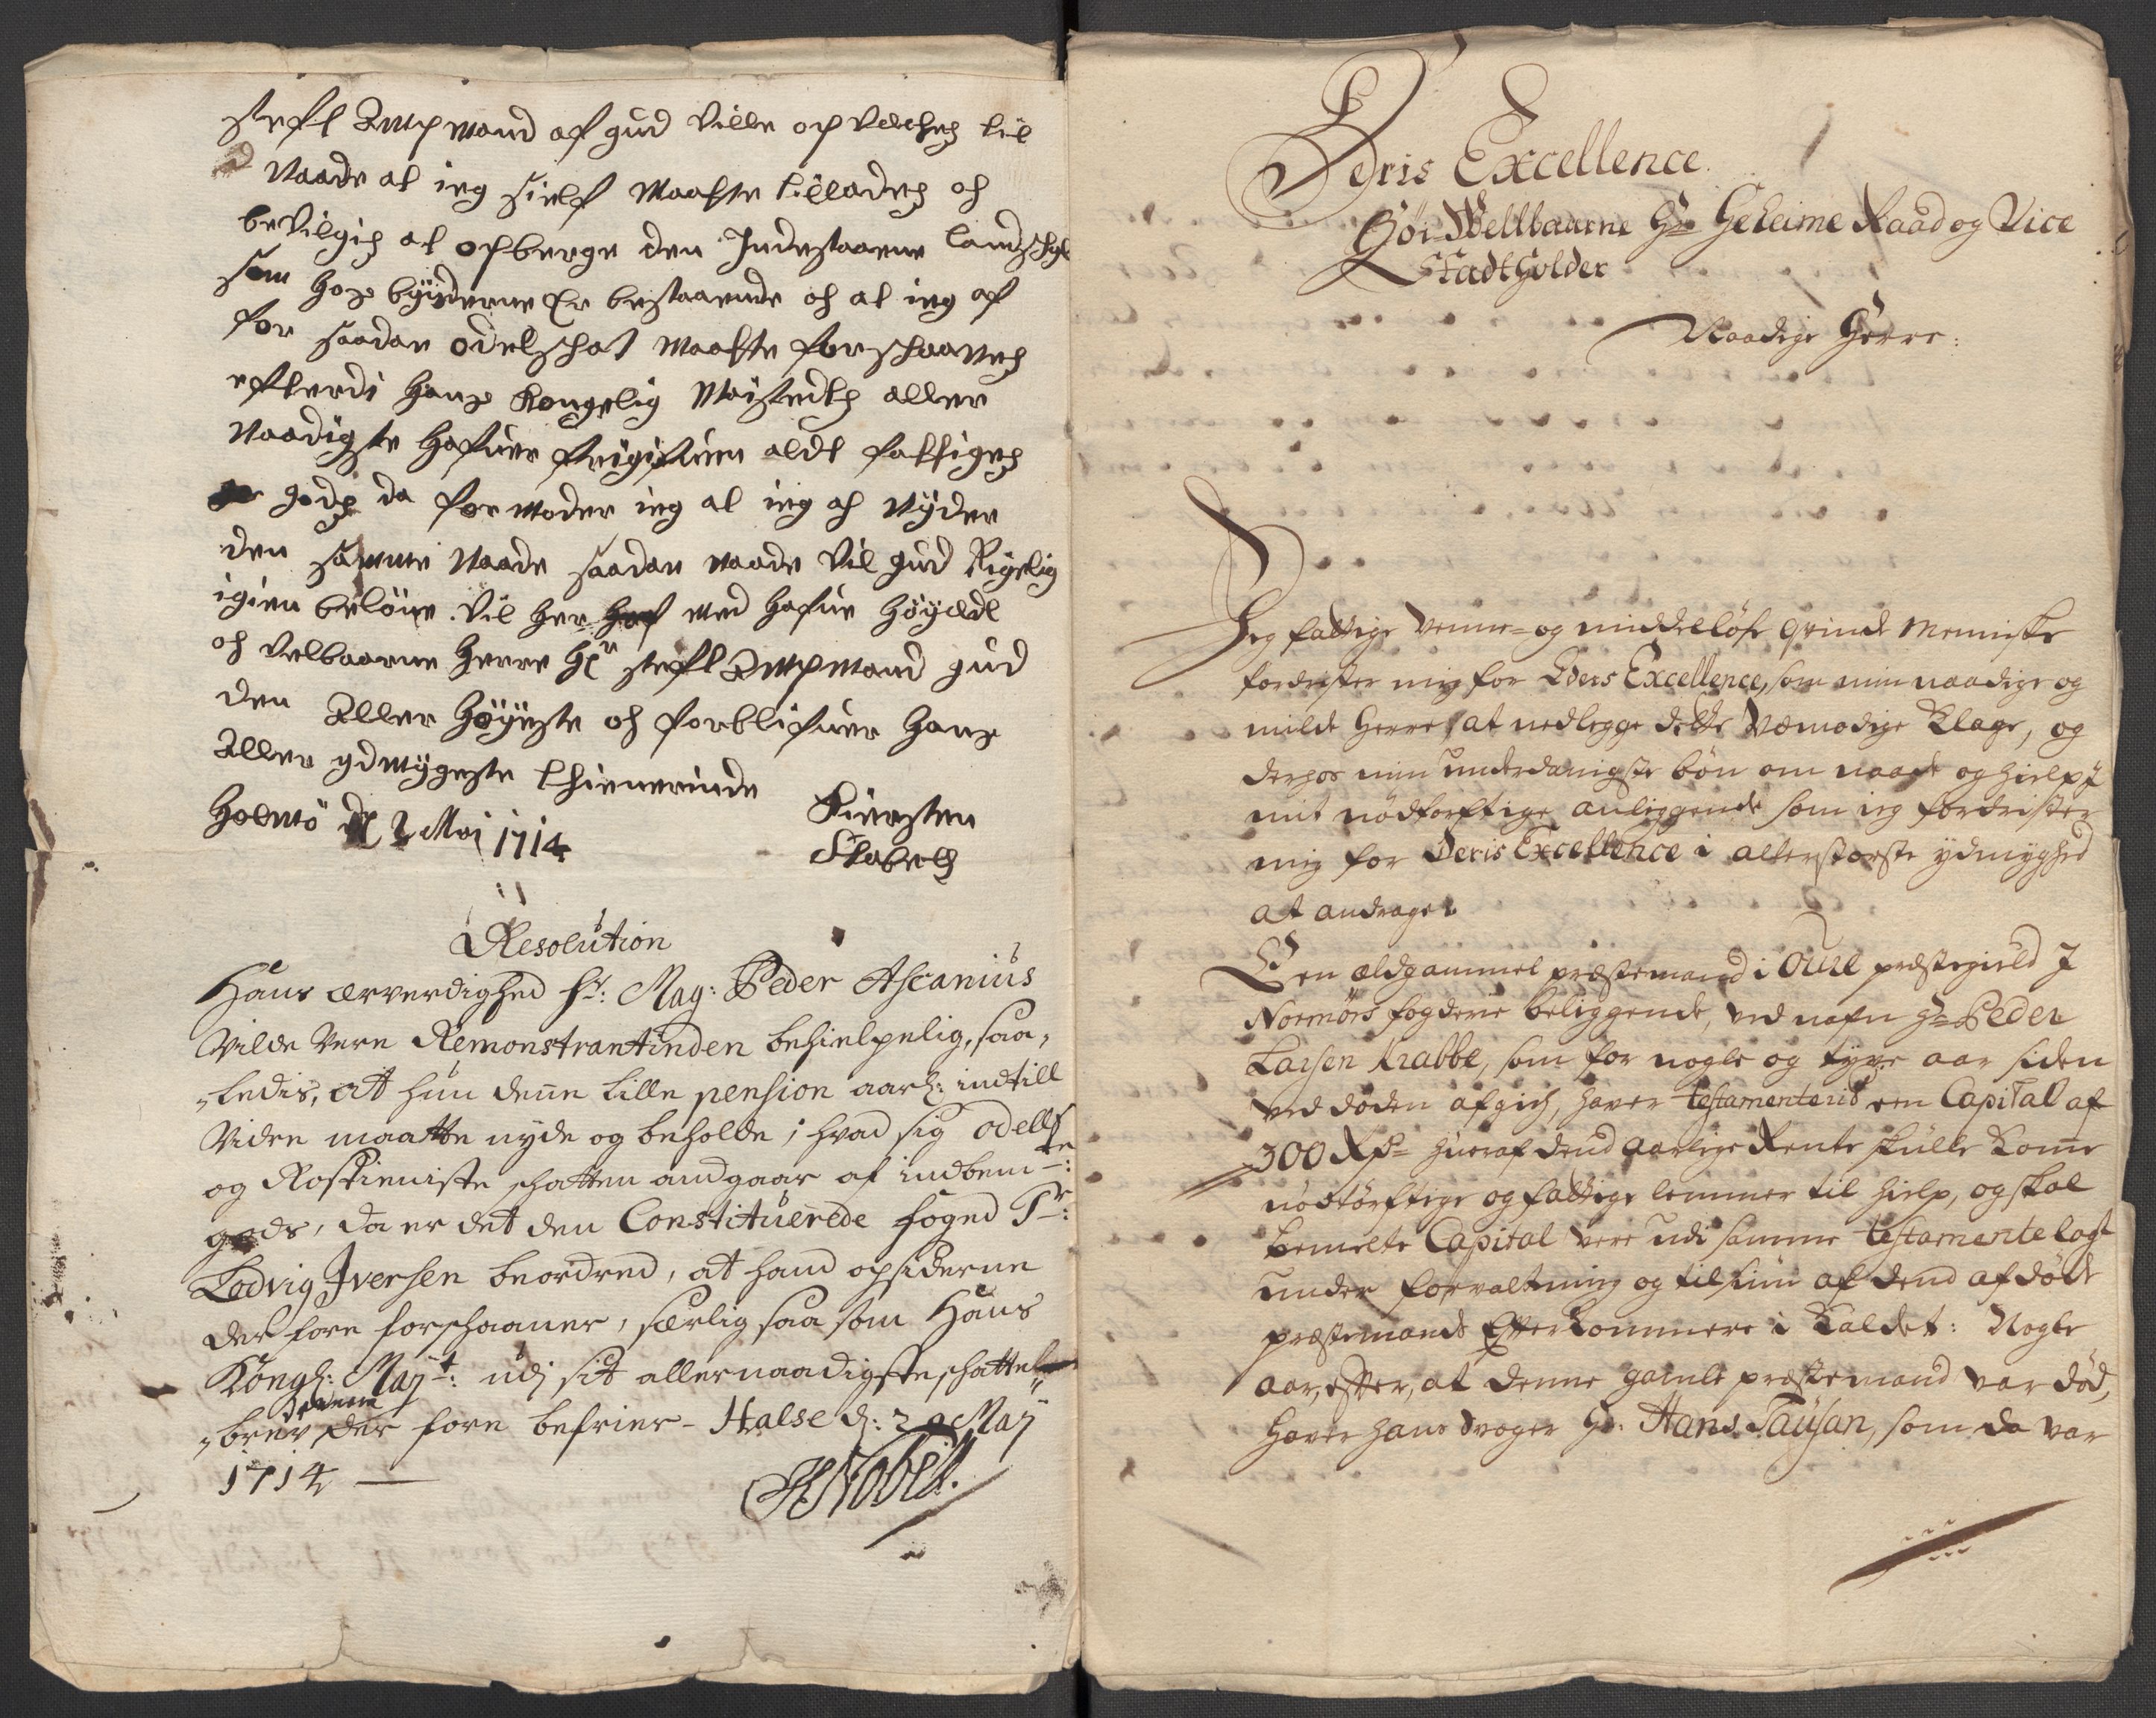 steft Ampmand af gud ville opveches til
Naade at ieg sielf maatte tillades och
bevilgis at opberge den Indestaaene landschyl
som hos bÿgderne Er bestaaende och at ieg af
for saadan odelschat maatte forschaanes
efterdi hans kongelig Maisteds aller
Naadigste hafuer frigifuen aldt fattiges
godz da formoder ieg at ieg och nÿder
den samme Naade saadan naade vil gud Rigelig
igien belöne. vil her med hafue höÿædl
och velbaarne herre Hr steft Ampmand gud
den Aller höÿeste och forblifuer hans
Aller ydmÿgeste thienerinde
Holmö d 2 Maj 1714
Kiersten
Stabels
Resolution
Hans ærverdighed hr: Mag: Peder Ascanius
Vilde vere Remonstrantinden behielpelig, saa-
-ledis, att hun denne lille pension aarl: indtill
Vidre maatte nyde og beholde; hvad sig odells
og Rostieniste schatten andgaar af indbemte:
gods, da er det den Constituerede foged Sr:
Lodvig Iversen beordred, at hand opsiderne
der fore forschaaner, særlig saa som Hans
Kongl: Majt: udj sit allernaadigste schatte
-brev dennem der fore befrier - Halse d: 29 Maj
1714 —
HNobel.
Deris Excellence
Höi-Wellbaarne Hr Geheime Raad og Vice
Stadtholder
Naadige Herre:
Jeg fattige venne- og middellöse qvinde Menniske
fordrister mig for Eders Excellence, som min naadige og
milde Herre, at nedlegge dette Vemodige Klage, og
derhos min underdanigste bön om naade og hielp J
mit nödtorftige anliggende som ieg fordrister
mig for Deris Excellence i allerstörste ydmyghed
at andrage.
En ældgammel præstemand i Oure præstegield J
Normörs fogderie beliggende, ved nafn Hr Peder
Larsen Krabbe, som for nogle og tyve aar siden
ved döden afgich, haver testamenterid een Capital af
300 Rdr hvoraf dend aarlige Rente skulle komme
nödtörftige og fattige lemmer til hielp, og skal
bemelte Capital vere udi samme testamente lagt
under forvaltning og tilsiun af dend afdöde
præstemands Efterkommere i Kaldet: Nogle
aar, efter, at denne gamle præstemand var död,
haver hans Svoger Hr: Hans Tausan, som da var